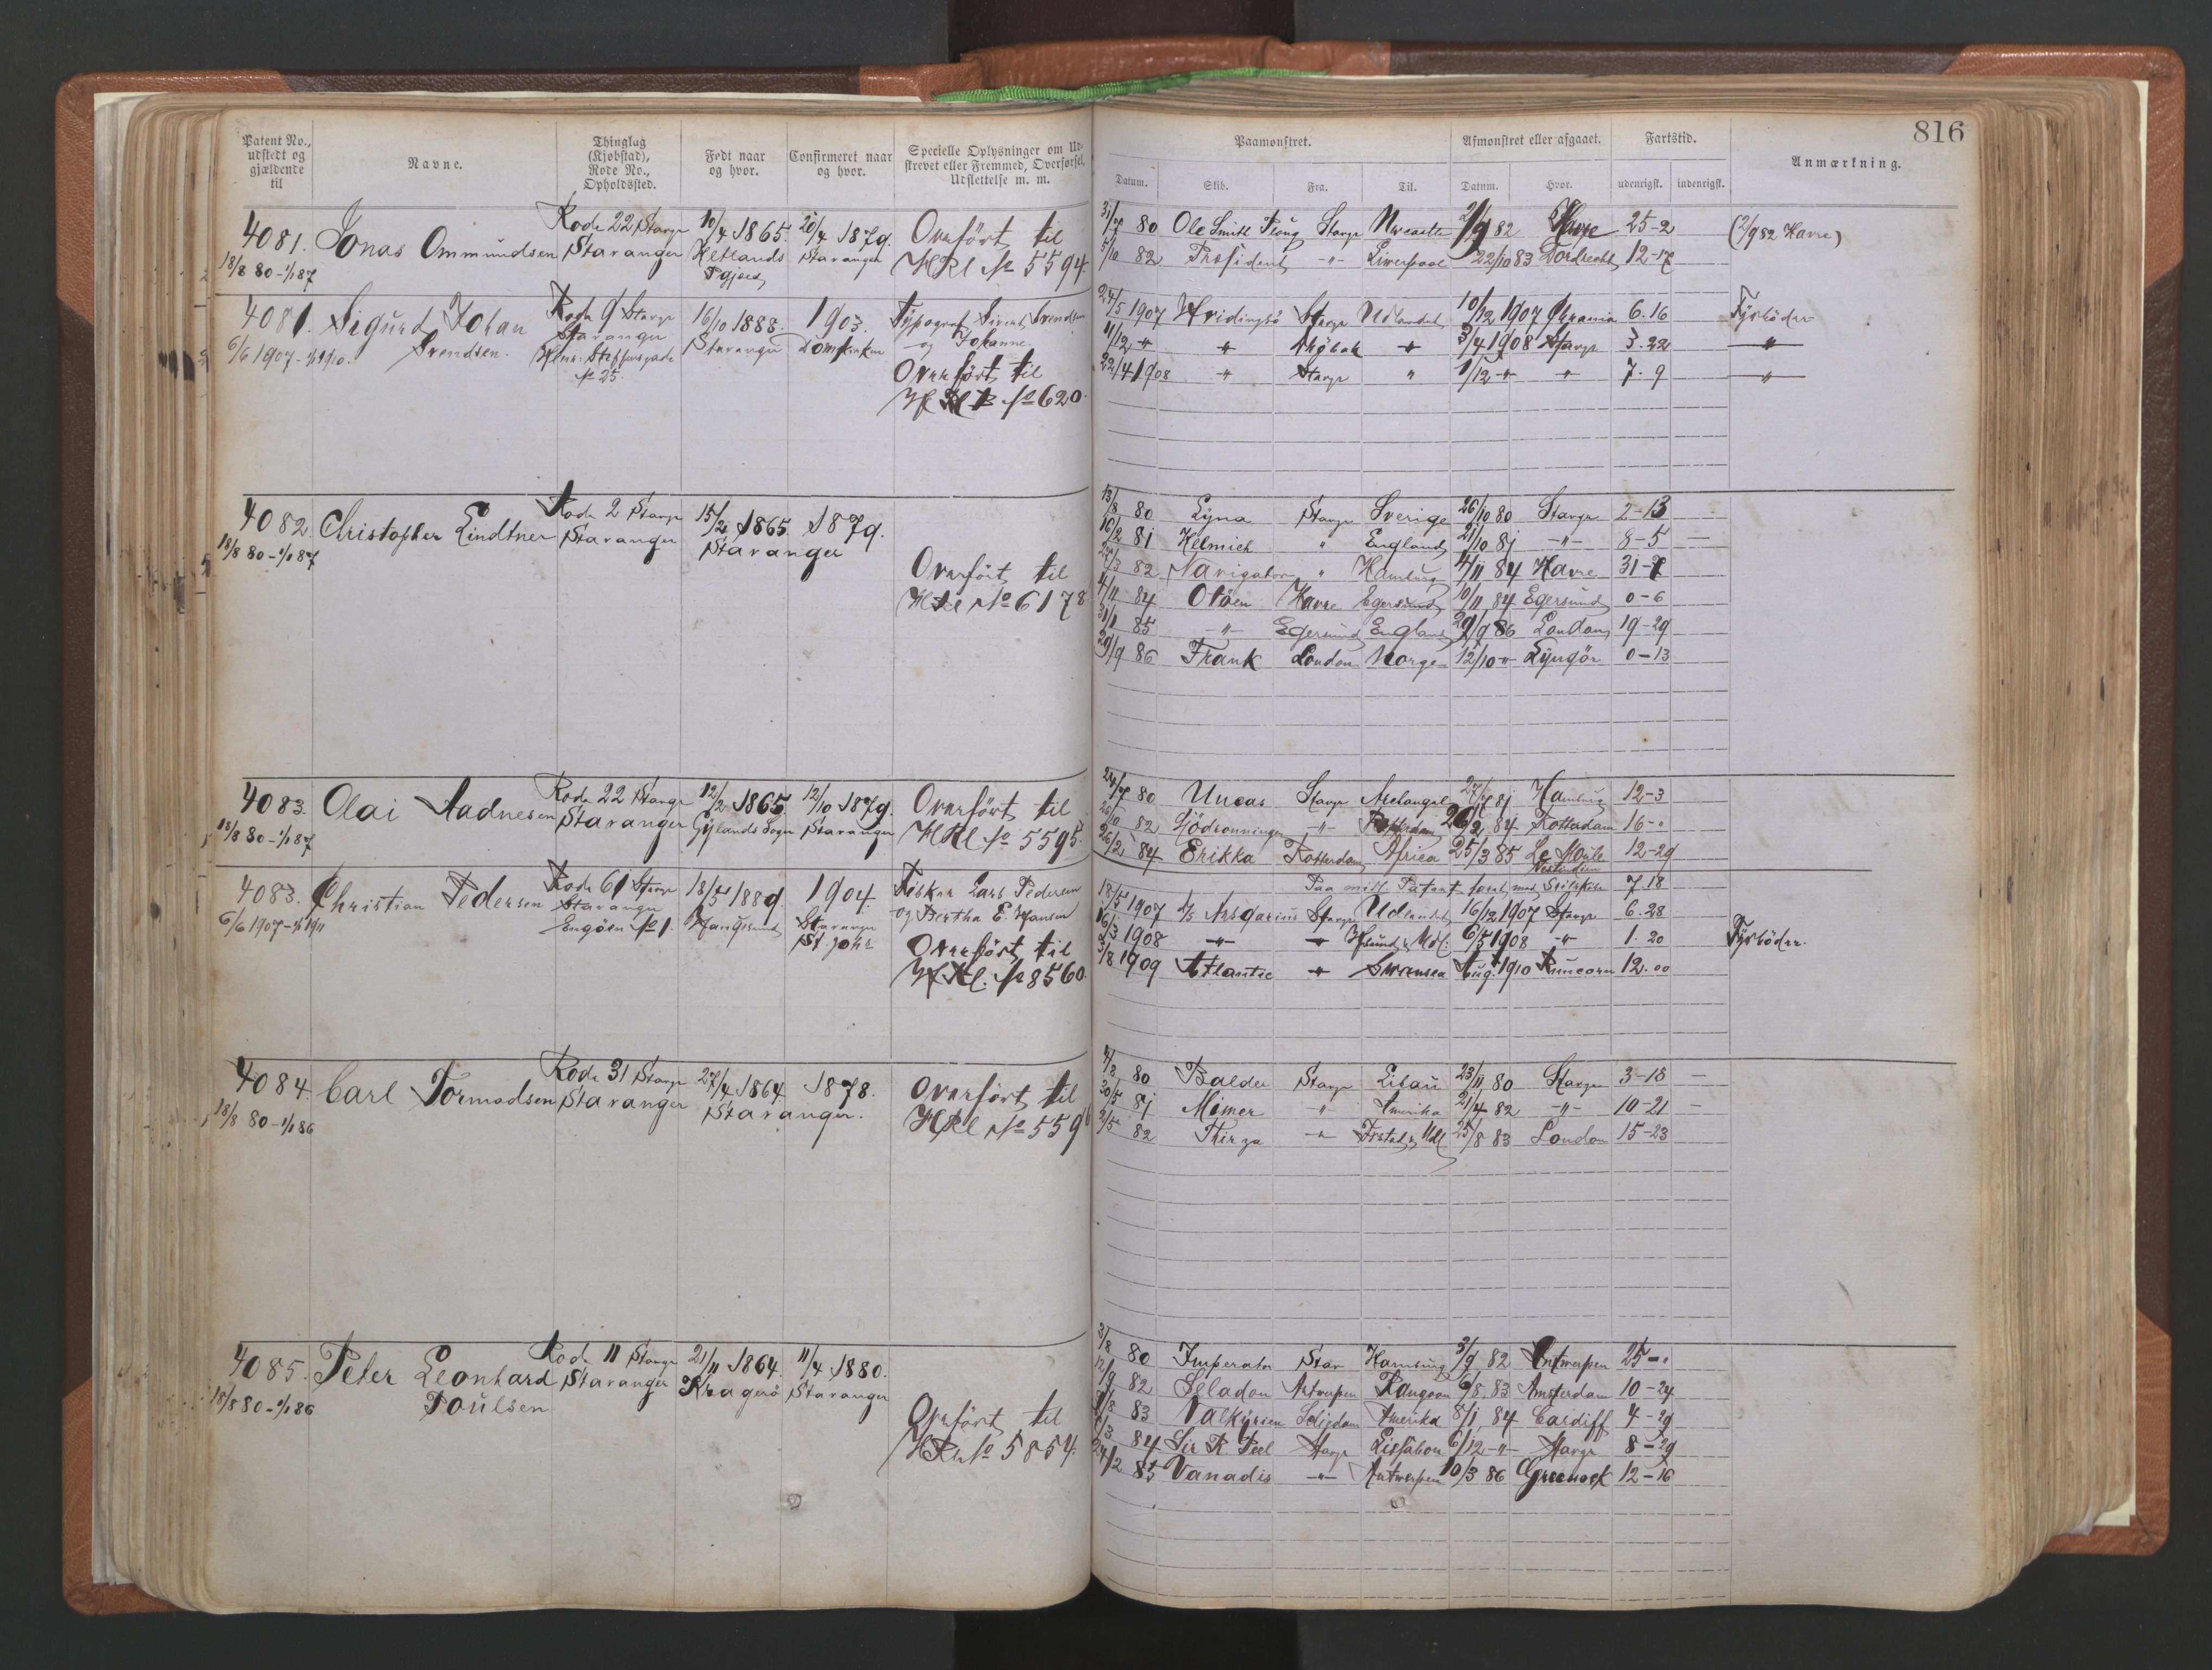 816
Patent No., udstedt og gjældende til
Navne.
Thinglag (Kjøbstad), Rode No., Opholdssted.
Født naar og hvor.
Confirmeret naar og hvor.
Specielle Oplysninger om Udskrevet eller Fremmed, Overførsel, Udslettelse m. m.
Paamønstret.
Afmønstret eller afgaaet.
Fartstid.
Anmærkning.
Datum. Skib. Fra. Til. Datum. Hvor. udenrigsk. indenrigsk.
4081. Jonas Ommundsen Rode 22 Stavgr 10/4 1865. 20/4 1879. Overført til
18/8 80-1/1 87 Stavanger Hetlands Pgjæld Stavanger HRl No 5594.
31/7 80 Ole Smith Ploug Stavgr Newcastle 2/9 82 Havre 25-2 (2/9 82 Havre)
5/10 82 Præsident -"- Liverpool 22/10 83 Dordrecht 12-17
4081. Sigurd Johan Svendsen. Rode 9 Stavgr 16/10 1888. 1903. Typograf Sivert Svendsen
6/6 1907- Stavanger Stavanger Domkirken og Johanne
Steffensgade No 25. Overført til
No 620.
24/5 1907 Hvidingsø Stavgr Udlandet 10/12 1907 Chrania 6.16 Fyrbøder
11/12 " " " 3/4 1908 Stavgr 3.22 "
22/4 1908 " Stavgr " 1/12 " " 7.9 "
4082. Christopher Lindtner Rode 2 Stavgr 15/2 1865. 1879.
18/8 80-1/1 87 Stavanger Stavanger
Overført til
HRl No 6178
13/8 80 Lyna Stavgr Sverige 26/10 80 Stavgr 2-13
16/2 81 Helmich " England 21/10 81 -"- 8-5 -
82 Navigator " Hamburg 4/11 84 Havre 31-7
4/11 84 Otøen Havre Egersund 10/11 84 Egersund 0-6
85 -"- Egersund England 29/9 86 London 19-29
29/9 86 Frank London Norge 12/10 " Lyngør 0-13
4083. Olai Aadnesen Rode 22 Stavgr 12/2 1865. 12/10 1879. Overført til
18/8 80-1/1 87 Stavanger Gylands Sogn Stavanger HRl No 5595.
24/7 80 Uncas Stavgr Archangel 27/7 81 Hamburg 12-3
82 Sjødronningen -"- Rotterdam 26/2 84 Rotterdam 16-"
26/2 84 Erikka Rotterdam Africa 25/3 85 Le Moule Vestindien 12-29
4083. Christian Pedersen Rode 61 Stavgr 18/5 1889. 1904. Fisker Lars Pedersen
6/6 1907- 1911 Stavanger Engøen No 1. Haugesund Stavanger St. Johs og Bertha E. Hansen
Overført til
HRl. No 8560.
Paa midl. Patent 7.18
18/5 1907 Ansgarius Stavgr Udlandet 16/12 1907 Stavgr 6.28
16/3 1908 -"- " 6/5 1908 -"- 1.20 Fyrbøder.
3/8 1909 Atlantic " Swansea Aug. 1910 Runcorn 12.00
4084. Carl Tormodsen Rode 31 Stavgr 27/4 1864. 1878. Overført til
18/8 80-1/1 86 Stavanger Stavanger. HRl No 5596
80 Balder Stavgr Libau 23/11 80 Stavgr 3-18 -
30/5 81 Mimer " Amerika 21/4 82 -"- 10-21 -
2/5 82 Thirza -"- 25/8 83 London 15-23
4085. Peter Leonhard Poulsen Rode 11 Stavgr 21/11 1864. 11/4 1880.
18/8 80-1/1 86 Stavanger Kragerø Stavanger
Overført til
HRl No 5854.
3/8 80 Imperator Stav Hamburg 3/9 82 Antwerpen 25-"
12/9 82 Seladon Antwerpen Rangoon 6/8 83 Amsterdam 10-24
83 Valkyrien Amerika 5/1 84 Cardiff 4-29
84 Sir R Peel Stavgr Lissabon 6/12 -"- Stavgr 8-29
24/2 85 Vanadis -"- Antwerpen 10/3 86 Greenock 12-16